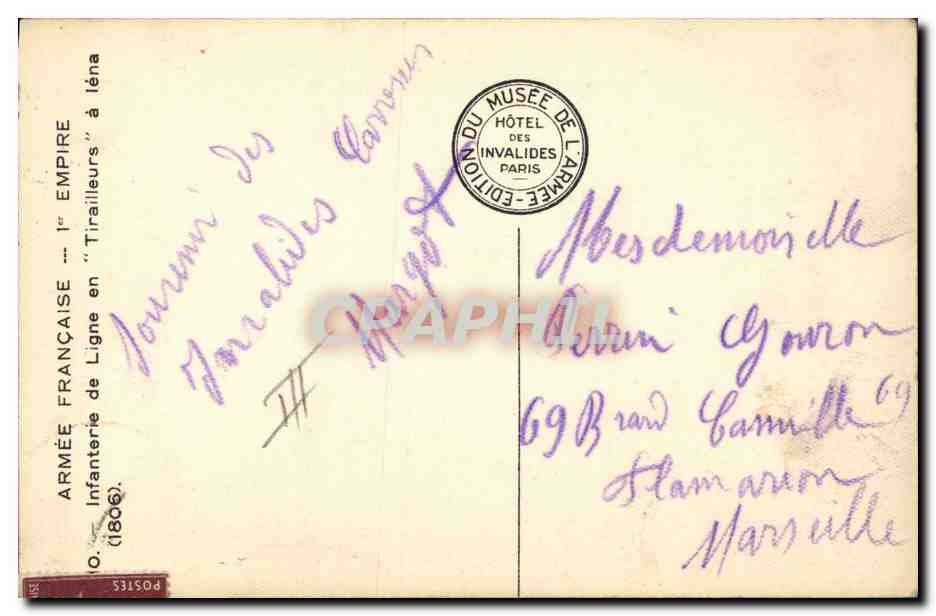 ARMÉE FRANÇAISE --- 1er EMPIRE
10. Infanterie de Ligne en "Tirailleurs" à Iéna
(1806).
Souvenir des
Invalides
Margot
III
EDITION DU MUSÉE DE L'ARMÉE
HÔTEL
DES
INVALIDES
PARIS
Mesdemoiselle
Perrin Gouron
69 Bvard Camille 69
Flamarion
Marseille
CPAPHIL
POSTES